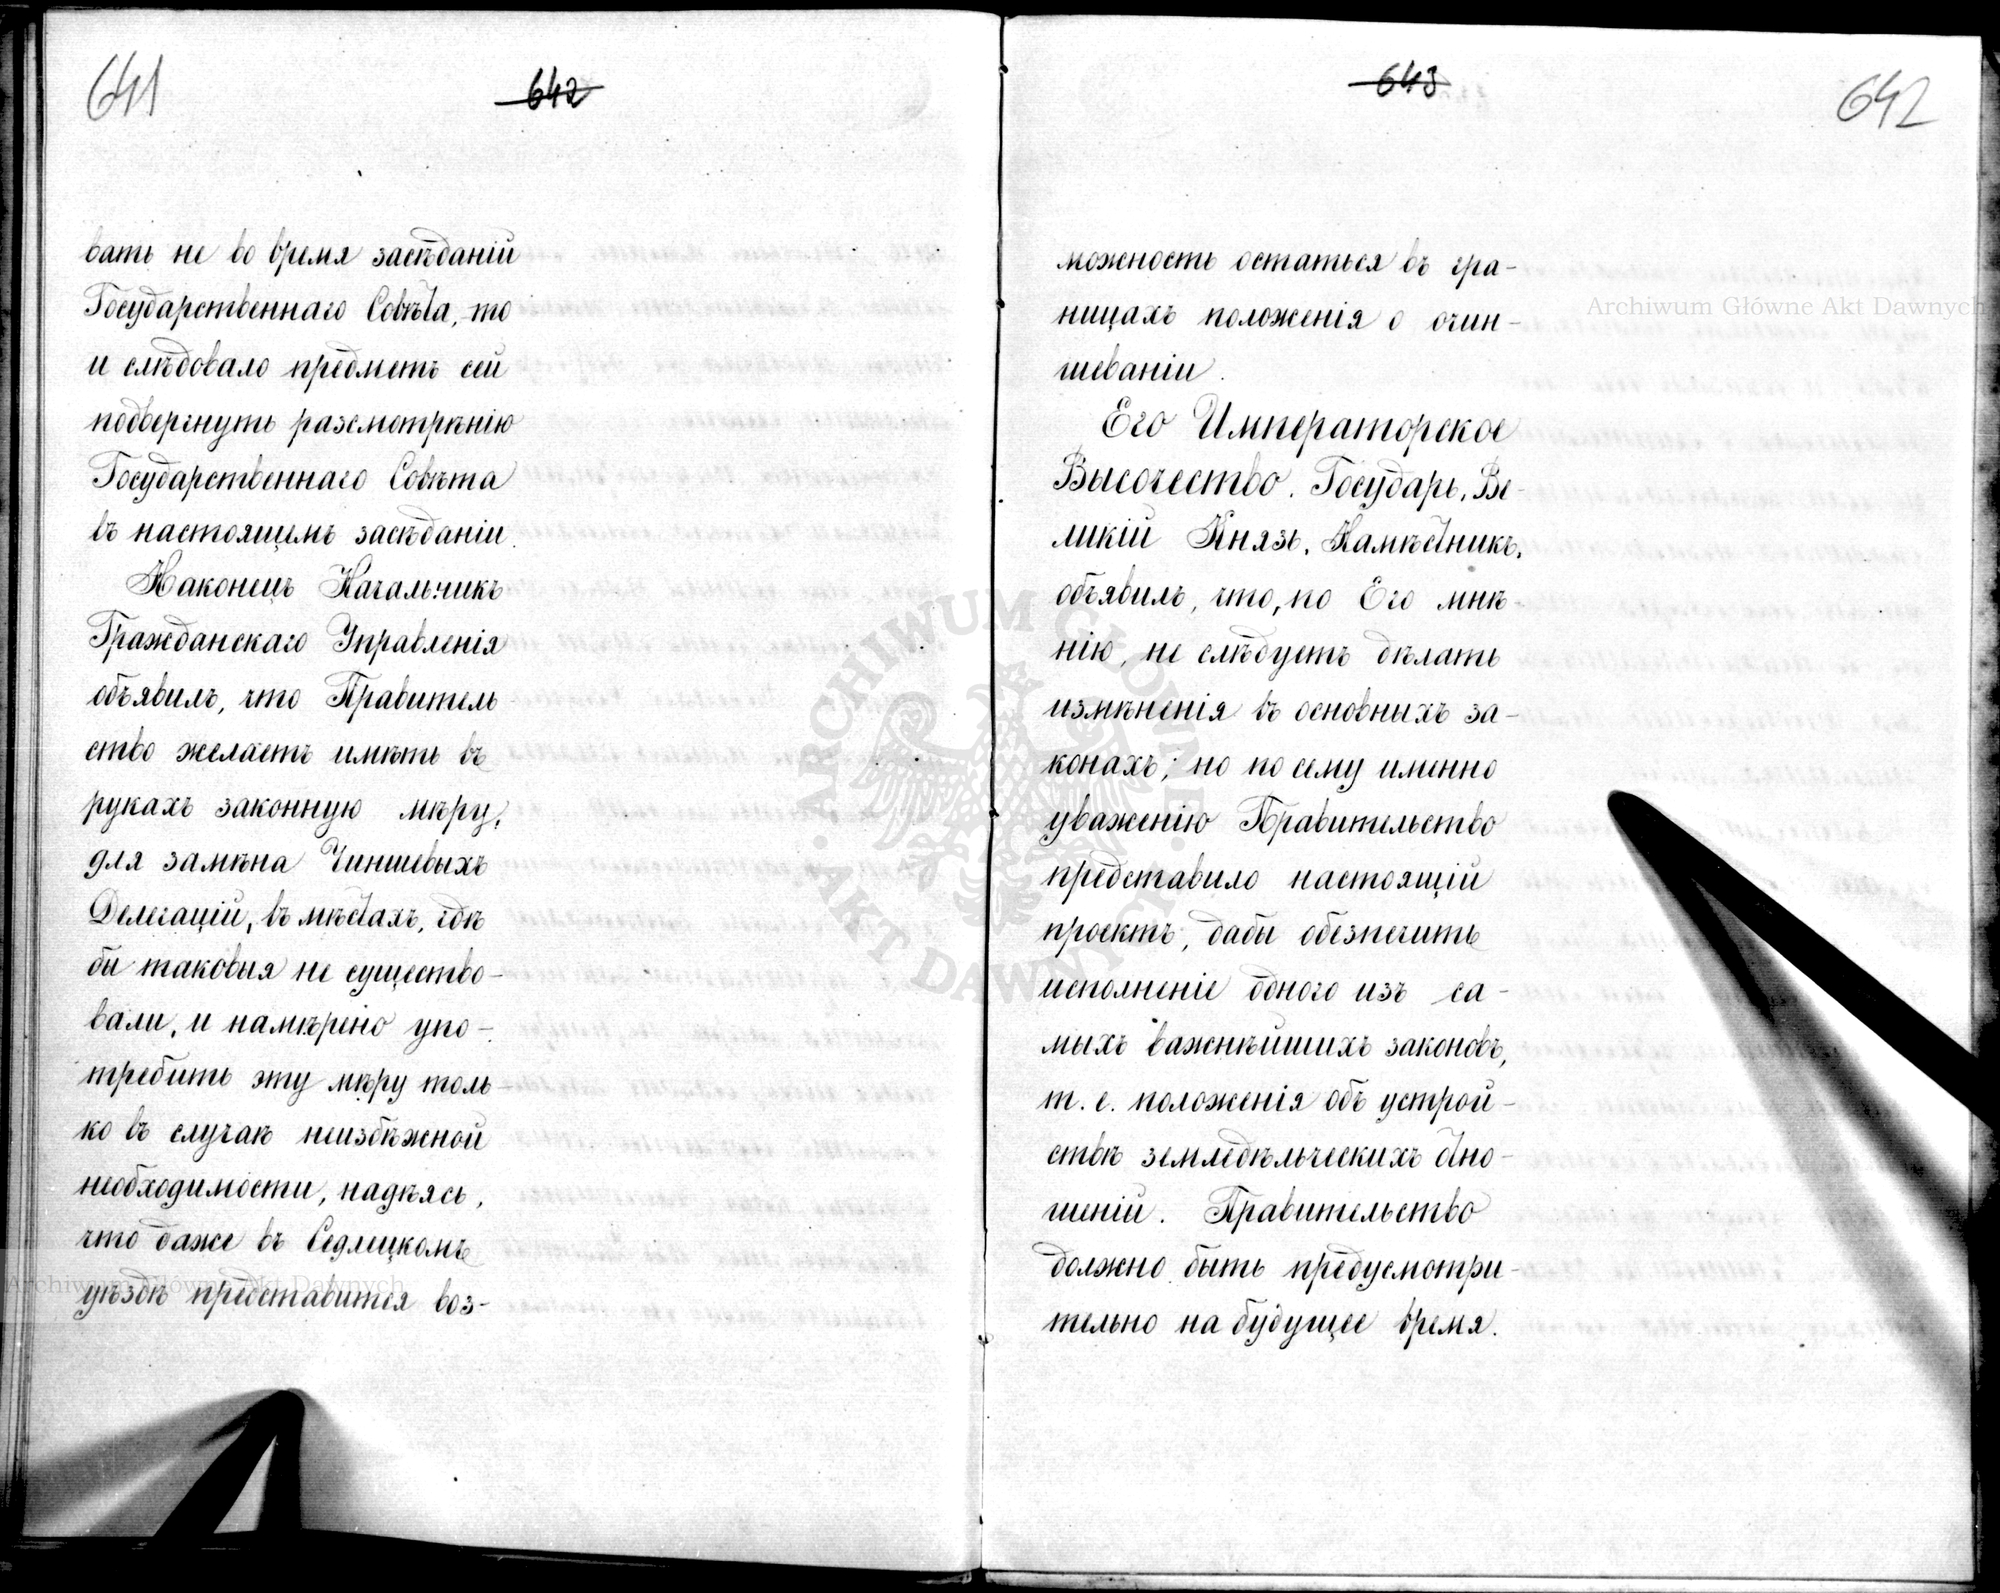 641
642
вать не во время засѣданій
Государственнаго Совѣта, то
и слѣдовало предметъ сей
подвергнуть разсмотрѣнію
Государственнаго Совѣта
въ настоящемъ засѣданіи.
Наконецъ Начальникъ
Гражданскаго Управленія
объявилъ, что Правитель-
ство желаетъ имѣть въ
рукахъ законную мѣру,
для замѣна Чиншевыхъ
Делегацій, въ мѣстахъ, гдѣ
бы таковыя не существо-
вали, и намѣрено упо-
требить эту мѣру толь-
ко въ случаѣ неизбѣжной
необходимости, надѣясь,
что даже въ Седлецкомъ
уѣздѣ представится воз-
643
642
можность остаться въ гра-
ницахъ положенія о очин-
шеваніи.
Его Императорское
Высочество, Государь, Ве-
ликій Князь, Намѣстникъ,
объявилъ, что, по Его мнѣ-
нію, не слѣдуетъ дѣлать
измѣненія въ основныхъ за-
конахъ; но по сему именно
уваженію Правительство
представило настоящій
проектъ, дабы обезпечить
исполненіе одного изъ са-
мыхъ важнѣйшихъ законовъ,
т. е. положенія объ устрой-
ствѣ земледѣльческихъ отно-
шеній. Правительство
должно быть предусмотри-
тельно на будущее время.
Archiwum Główne Akt Dawnych
Archiwum Główne Akt Dawnych
ARCHIWUM GŁÓWNE
AKT DAWNYCH